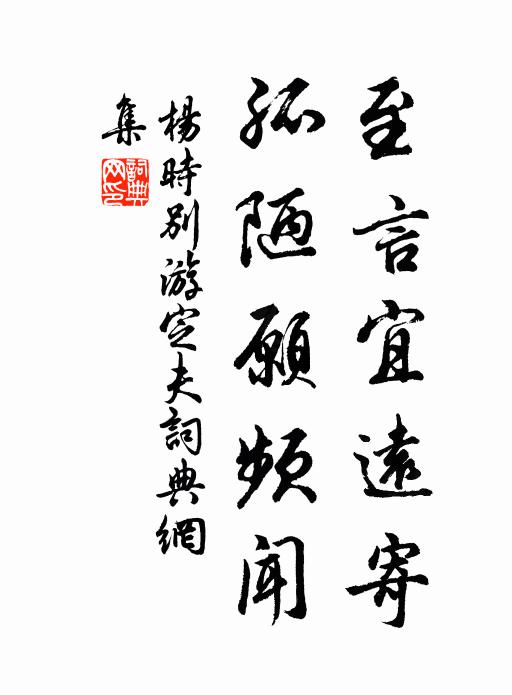 至言宜遠寄
孤陋願頻聞
楊時別游定夫詞典網
集
詞典網印